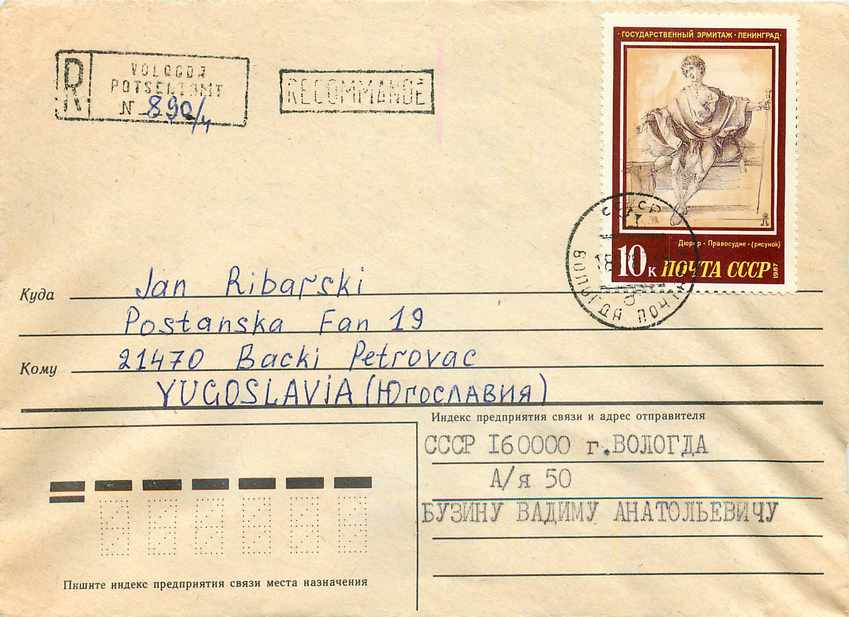 R
VOLOGDA
POTSERTAMT
N 890/4
RECOMMANDE
ГОСУДАРСТВЕННЫЙ ЭРМИТАЖ · ЛЕНИНГРАД
Дюрер · Правосудие · (рисунок)
10 к ПОЧТА СССР 1987
СССР
18
ВОЛОГДА ПОЧТ
Куда Jan Ribarski
Postanska Fan 19
Кому 21470 Backi Petrovac
YUGOSLAVIA (Югославия)
Индекс предприятия связи и адрес отправителя
СССР 160000 г.ВОЛОГДА
А/я 50
БУЗИНУ ВАДИМУ АНАТОЛЬЕВИЧУ
Пишите индекс предприятия связи места назначения